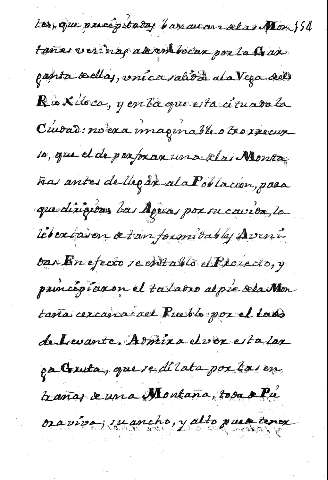 les, que precipitadas baxavan de las Mon- 154
tañas vecinas a desembocar por la Gar
ganta de ellas, unica salida a la Vega del
Rio Xiloca, y en la que esta cituada la
Ciudad: no era imaginable otro recur
so, que el de perforar una de las Monta
ñas antes de llegar a la Poblacion, para
que dirigidas las Aguas por su cavida, la
libertasen de tan formidables Aveni
das. En efecto se entablo el Proiecto, y
principiaron el taladro al pie de la Mon
taña cercana a el Pueblo por el lado
de Levante. Admira el ver esta lar
ga Gruta, que se dilata por las en
trañas de una Montaña, toda de Pie
dra viva; su ancho, y alto puede tener